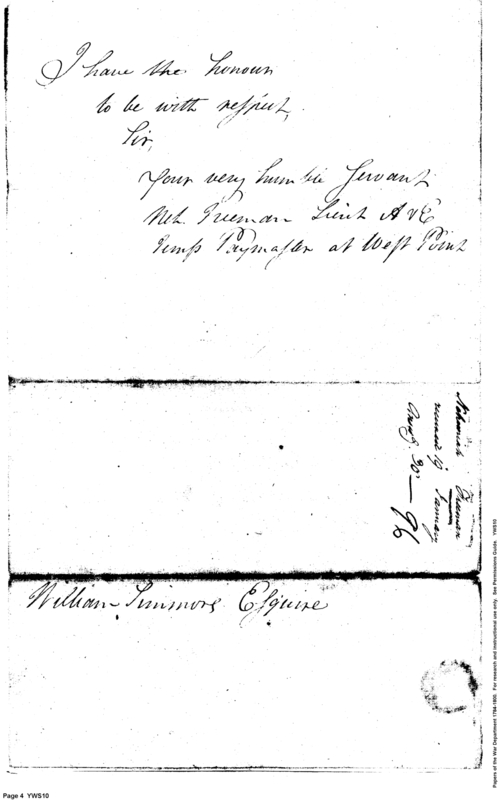 I have the honour
to be with respect,
Sir,
Your very humble Servant
Neh. Freeman Lieut A & E
Paymaster at West Point
Nehemiah Freeman
received 19 January
20 — 96
William Simmons Esquire
Page 4 YWS10
Papers of the War Department 1784-1800. For research and instructional use only. See Permissions Guide. YWS10